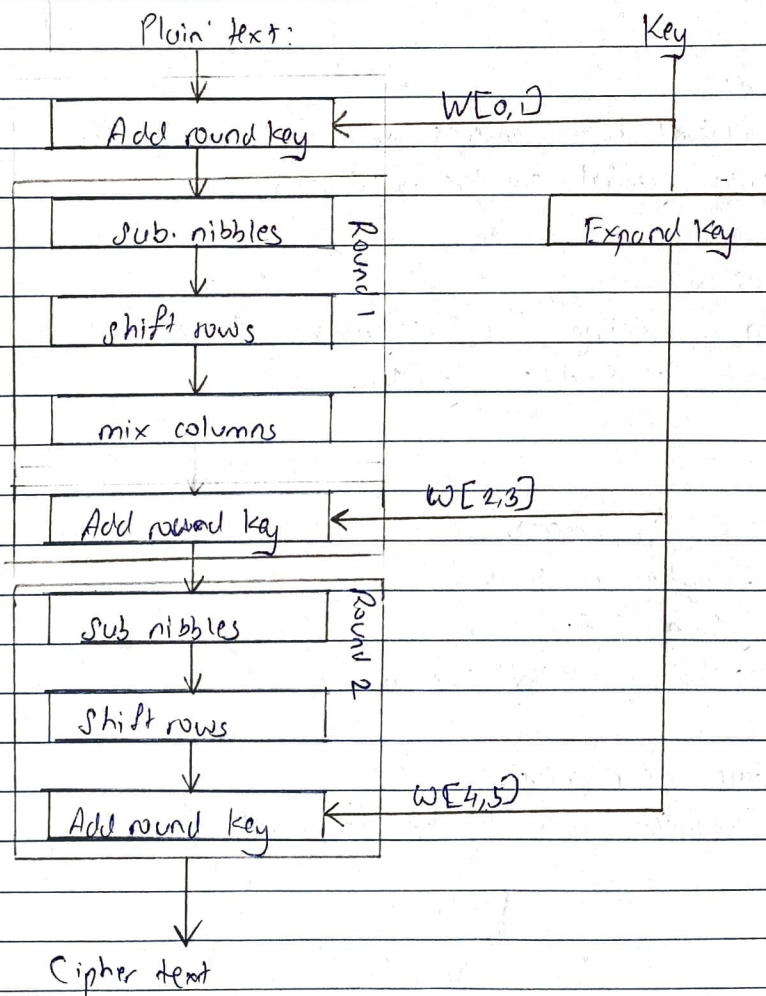 Plain text:
Key
W[0,1]
Add round key
Sub. nibbles
Round 1
Expand key
shift rows
mix columns
W[2,3]
Add round key
Sub nibbles
Round 2
Shift rows
W[4,5]
Add round key
Cipher text